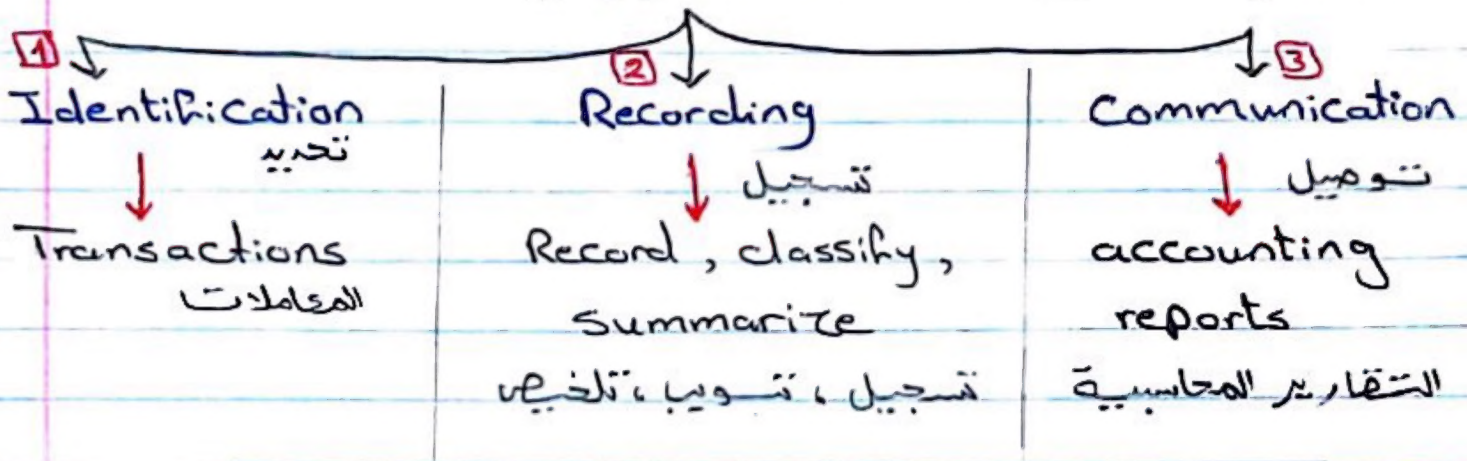 1
Identification
تحديد
Transactions
المعاملات
2
Recording
تسجيل
Record, classify,
summarize
تسجيل ، تبويب ، تلخيص
3
Communication
توصيل
accounting
reports
التقارير المحاسبية